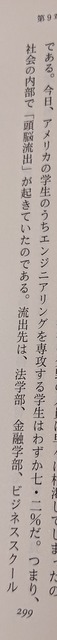 第9
である。今日、アメリカの学生のうちエンジニアリングを専攻する学生はわずか七・二％だ。つまり、
社会の内部で「頭脳流出」が起きていたのである。流出先は、法学部、金融学部、ビジネススクール
299